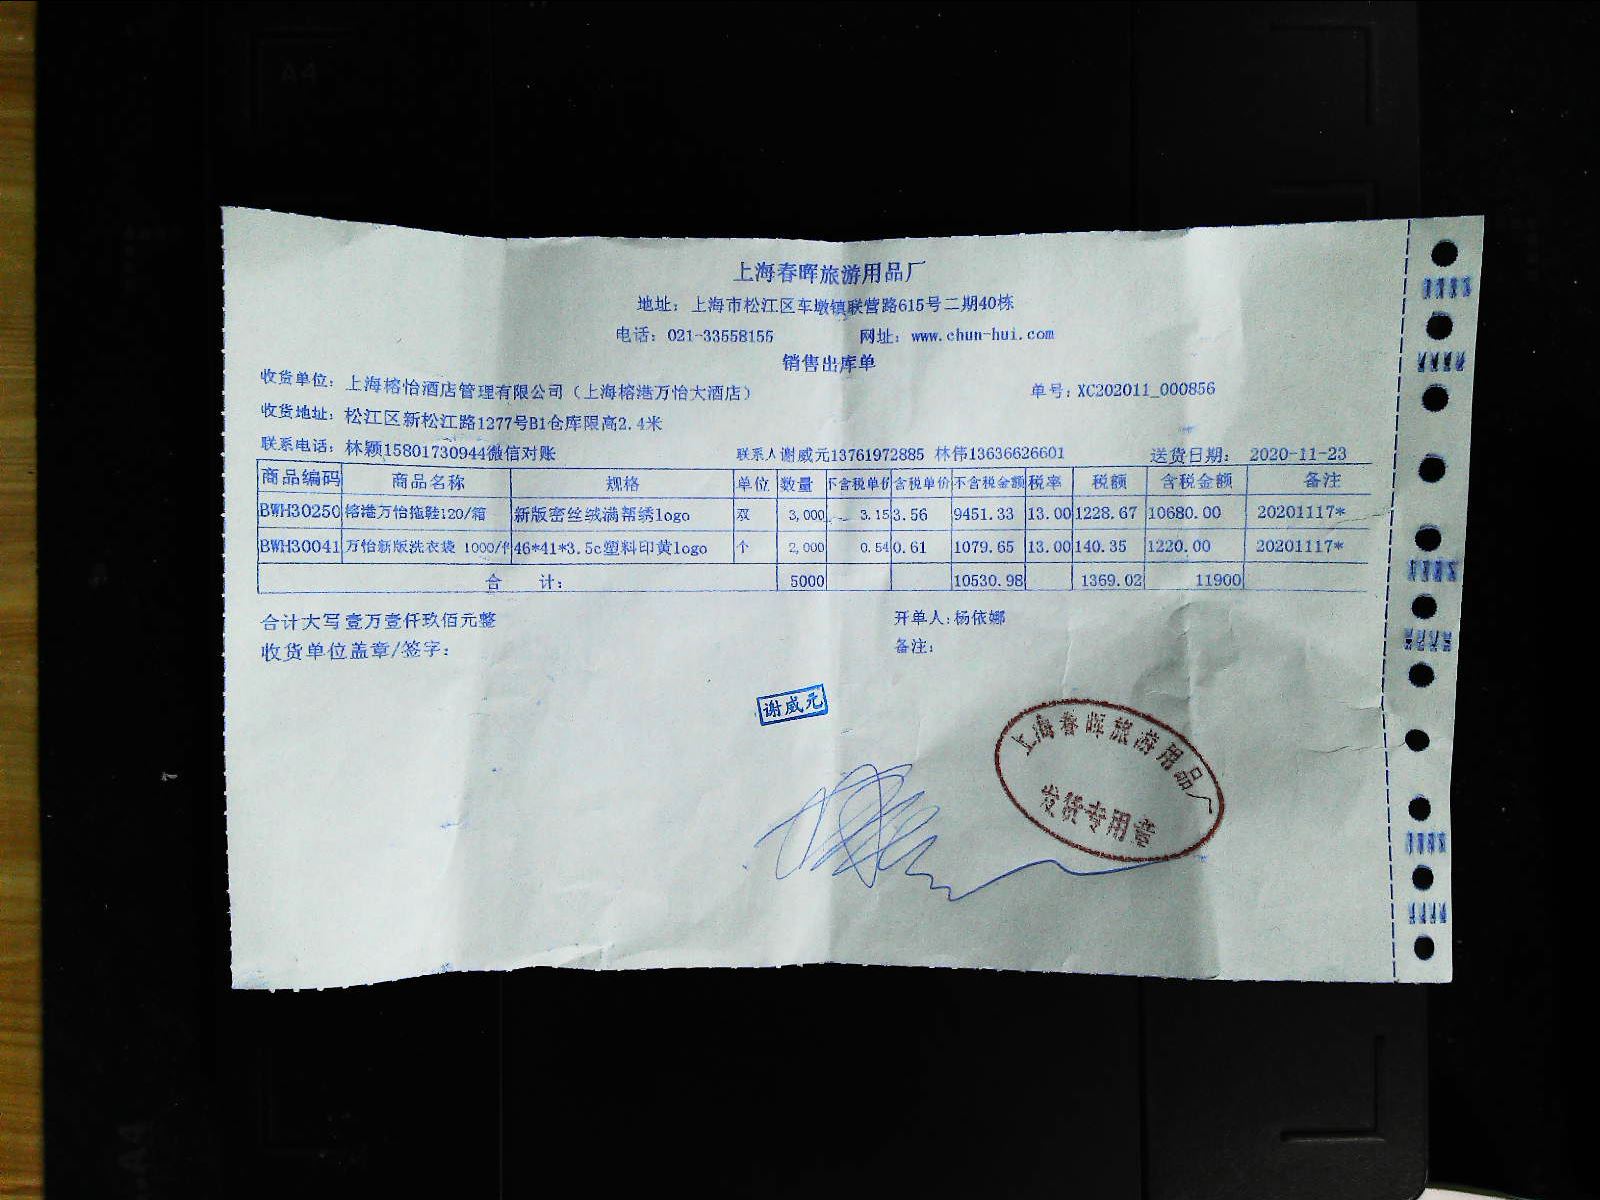 上海春晖旅游用品厂
地址：上海市松江区车墩镇联营路615号二期40栋
电话：021-33558155 网址：www.chun-hui.com
销售出库单
收货单位：上海榕怡酒店管理有限公司（上海榕港万怡大酒店） 单号：XC202011_000856
收货地址：松江区新松江路1277号B1仓库限高2.4米
联系电话：林颖15801730944微信对账 联系人谢威元13761972885 林伟13636626601 送货日期： 2020-11-23
商品编码 商品名称 规格 单位 数量 不含税单价 含税单价 不含税金额 税率 税额 含税金额 备注
BWH30250 榕港万怡拖鞋120/箱 新版密丝绒满帮绣logo 双 3,000 3.15 3.56 9451.33 13.00 1228.67 10680.00 20201117*
BWH30041 万怡新版洗衣袋 1000/件 46*41*3.5c塑料印黄logo 个 2,000 0.54 0.61 1079.65 13.00 140.35 1220.00 20201117*
合 计： 5000 10530.98 1369.02 11900
合计大写 壹万壹仟玖佰元整 开单人：杨依娜
收货单位盖章/签字： 备注：
谢威元
上海春晖旅游用品厂
发货专用章
A4